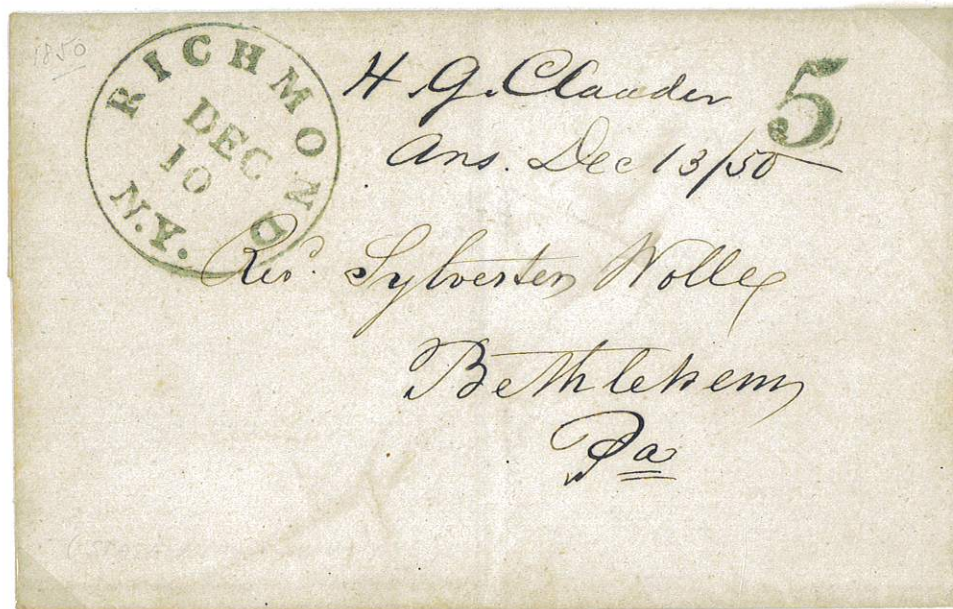 1850
RICHMOND
DEC
10
N.Y.
H. G. Clauder
5
Ans. Dec 13/50
Rev. Sylvester Wolle
Bethlehem
Pa